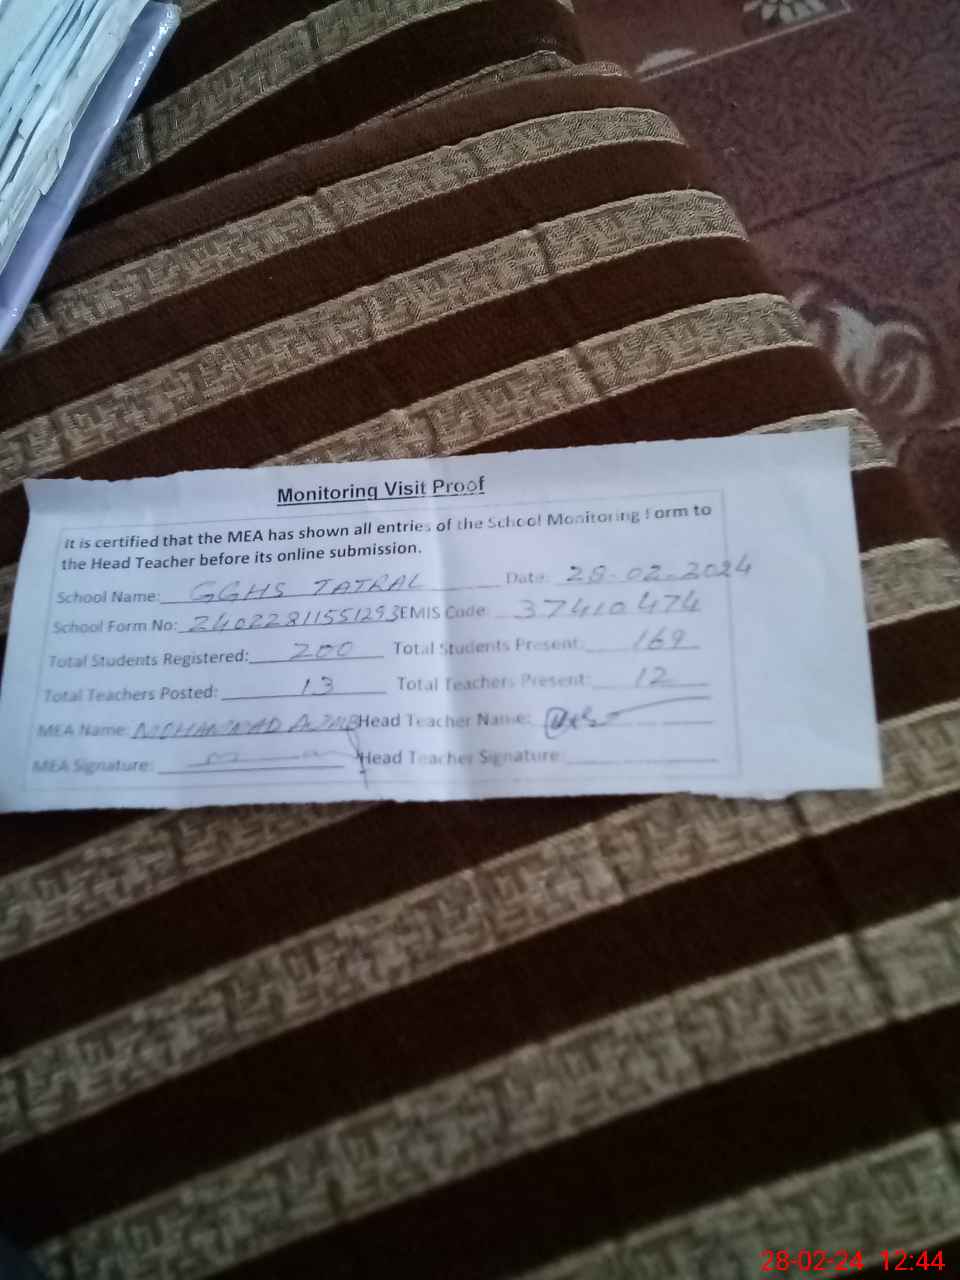 Monitoring Visit Proof
It is certified that the MEA has shown all entries of the School Monitoring Form to
the Head Teacher before its online submission.
School Name: GGHS TATRAL Date: 28-02-2024
School Form No: 24022811551293 EMIS Code 37410474
Total Students Registered: 200 Total Students Present: 169
Total Teachers Posted: 13 Total Teachers Present: 12
MEA Name: MOHAMMAD Head Teacher Name:
MEA Signature: Head Teacher Signature:
28-02-24 12:44